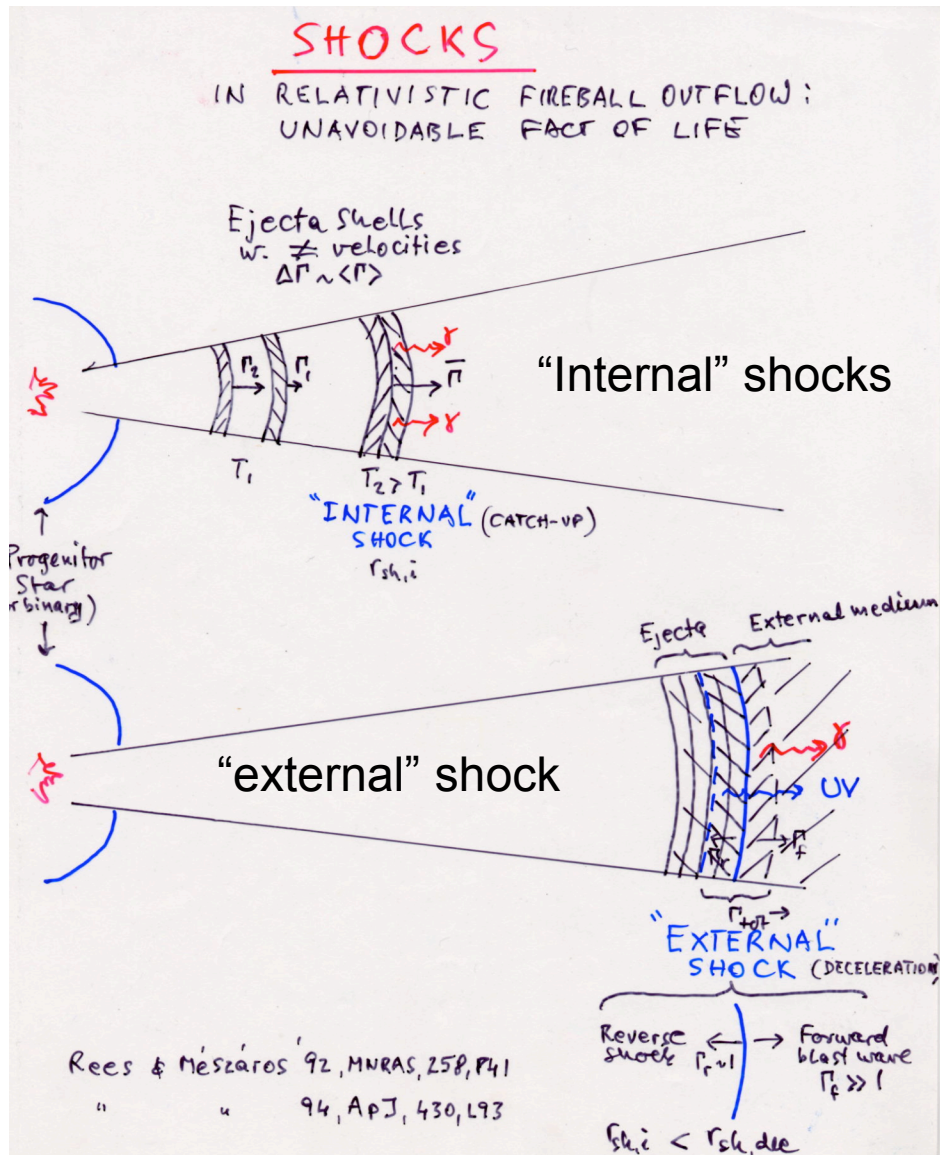 SHOCKS
IN RELATIVISTIC FIREBALL OUTFLOW:
UNAVOIDABLE FACT OF LIFE
Ejecta Shells
w. ≠ velocities
ΔΓ ~ <Γ>
Γ₂
Γ₁
γ
Γ̄
γ
"Internal" shocks
T₁
T₂ > T₁
"INTERNAL" (CATCH-UP)
SHOCK
r_sh,i
Progenitor
Star
r binary)
Ejecta
External medium
"external" shock
γ
UV
Γ_r
Γ_f
Γ_tot →
"EXTERNAL"
SHOCK (DECELERATION)
Reverse
shock
Γ_r ~ 1
Forward
blast wave
Γ_f >> 1
Rees & Mészáros '92, MNRAS, 258, P41
" " 94, ApJ, 430, L93
r_sh,i < r_sh,dec